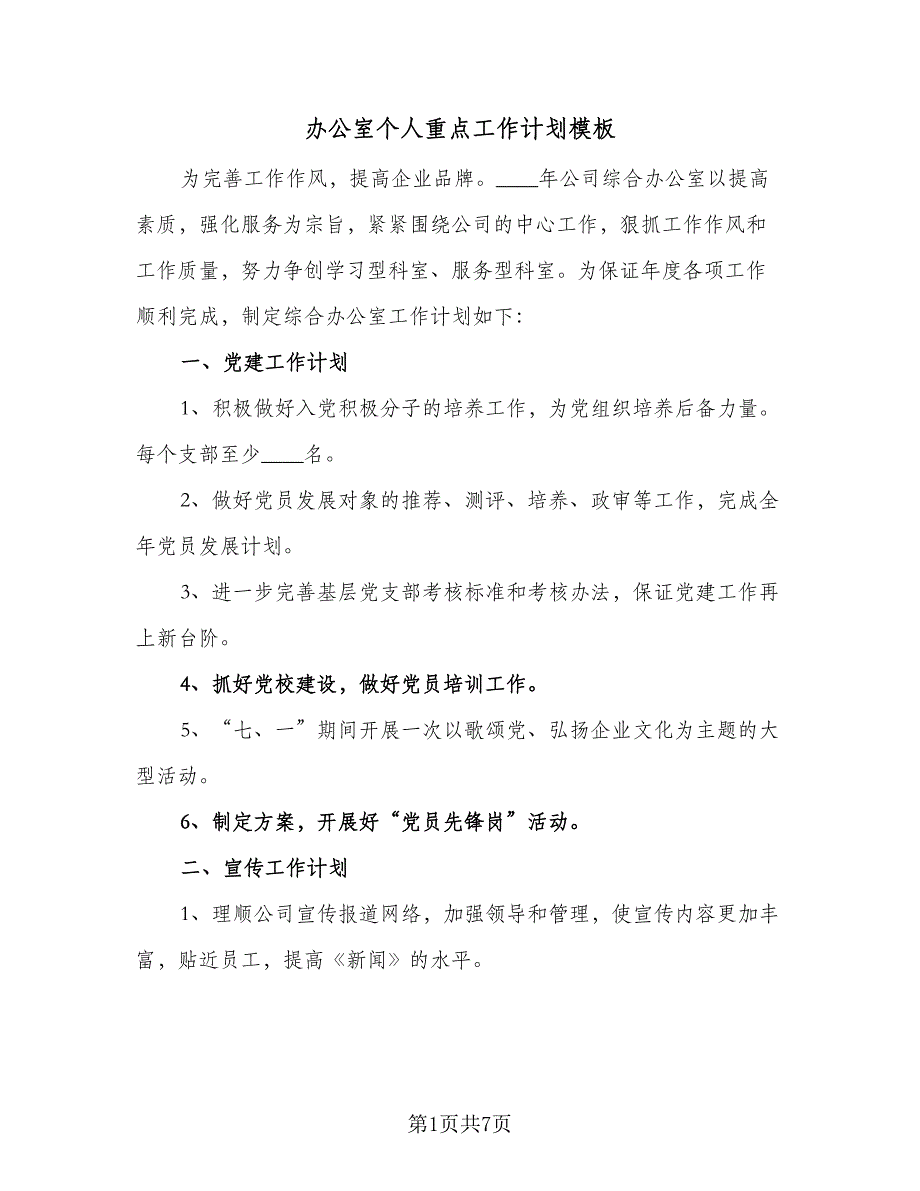 办公室个人重点工作计划模板
为完善工作作风，提高企业品牌。____年公司综合办公室以提高
素质，强化服务为宗旨，紧紧围绕公司的中心工作，狠抓工作作风和
工作质量，努力争创学习型科室、服务型科室。为保证年度各项工作
顺利完成，制定综合办公室工作计划如下：
一、党建工作计划
1、积极做好入党积极分子的培养工作，为党组织培养后备力量。
每个支部至少____名。
2、做好党员发展对象的推荐、测评、培养、政审等工作，完成全
年党员发展计划。
3、进一步完善基层党支部考核标准和考核办法，保证党建工作再
上新台阶。
4、抓好党校建设，做好党员培训工作。
5、“七、一”期间开展一次以歌颂党、弘扬企业文化为主题的大
型活动。
6、制定方案，开展好“党员先锋岗”活动。
二、宣传工作计划
1、理顺公司宣传报道网络，加强领导和管理，使宣传内容更加丰
富，贴近员工，提高《新闻》的水平。
第1页共7页